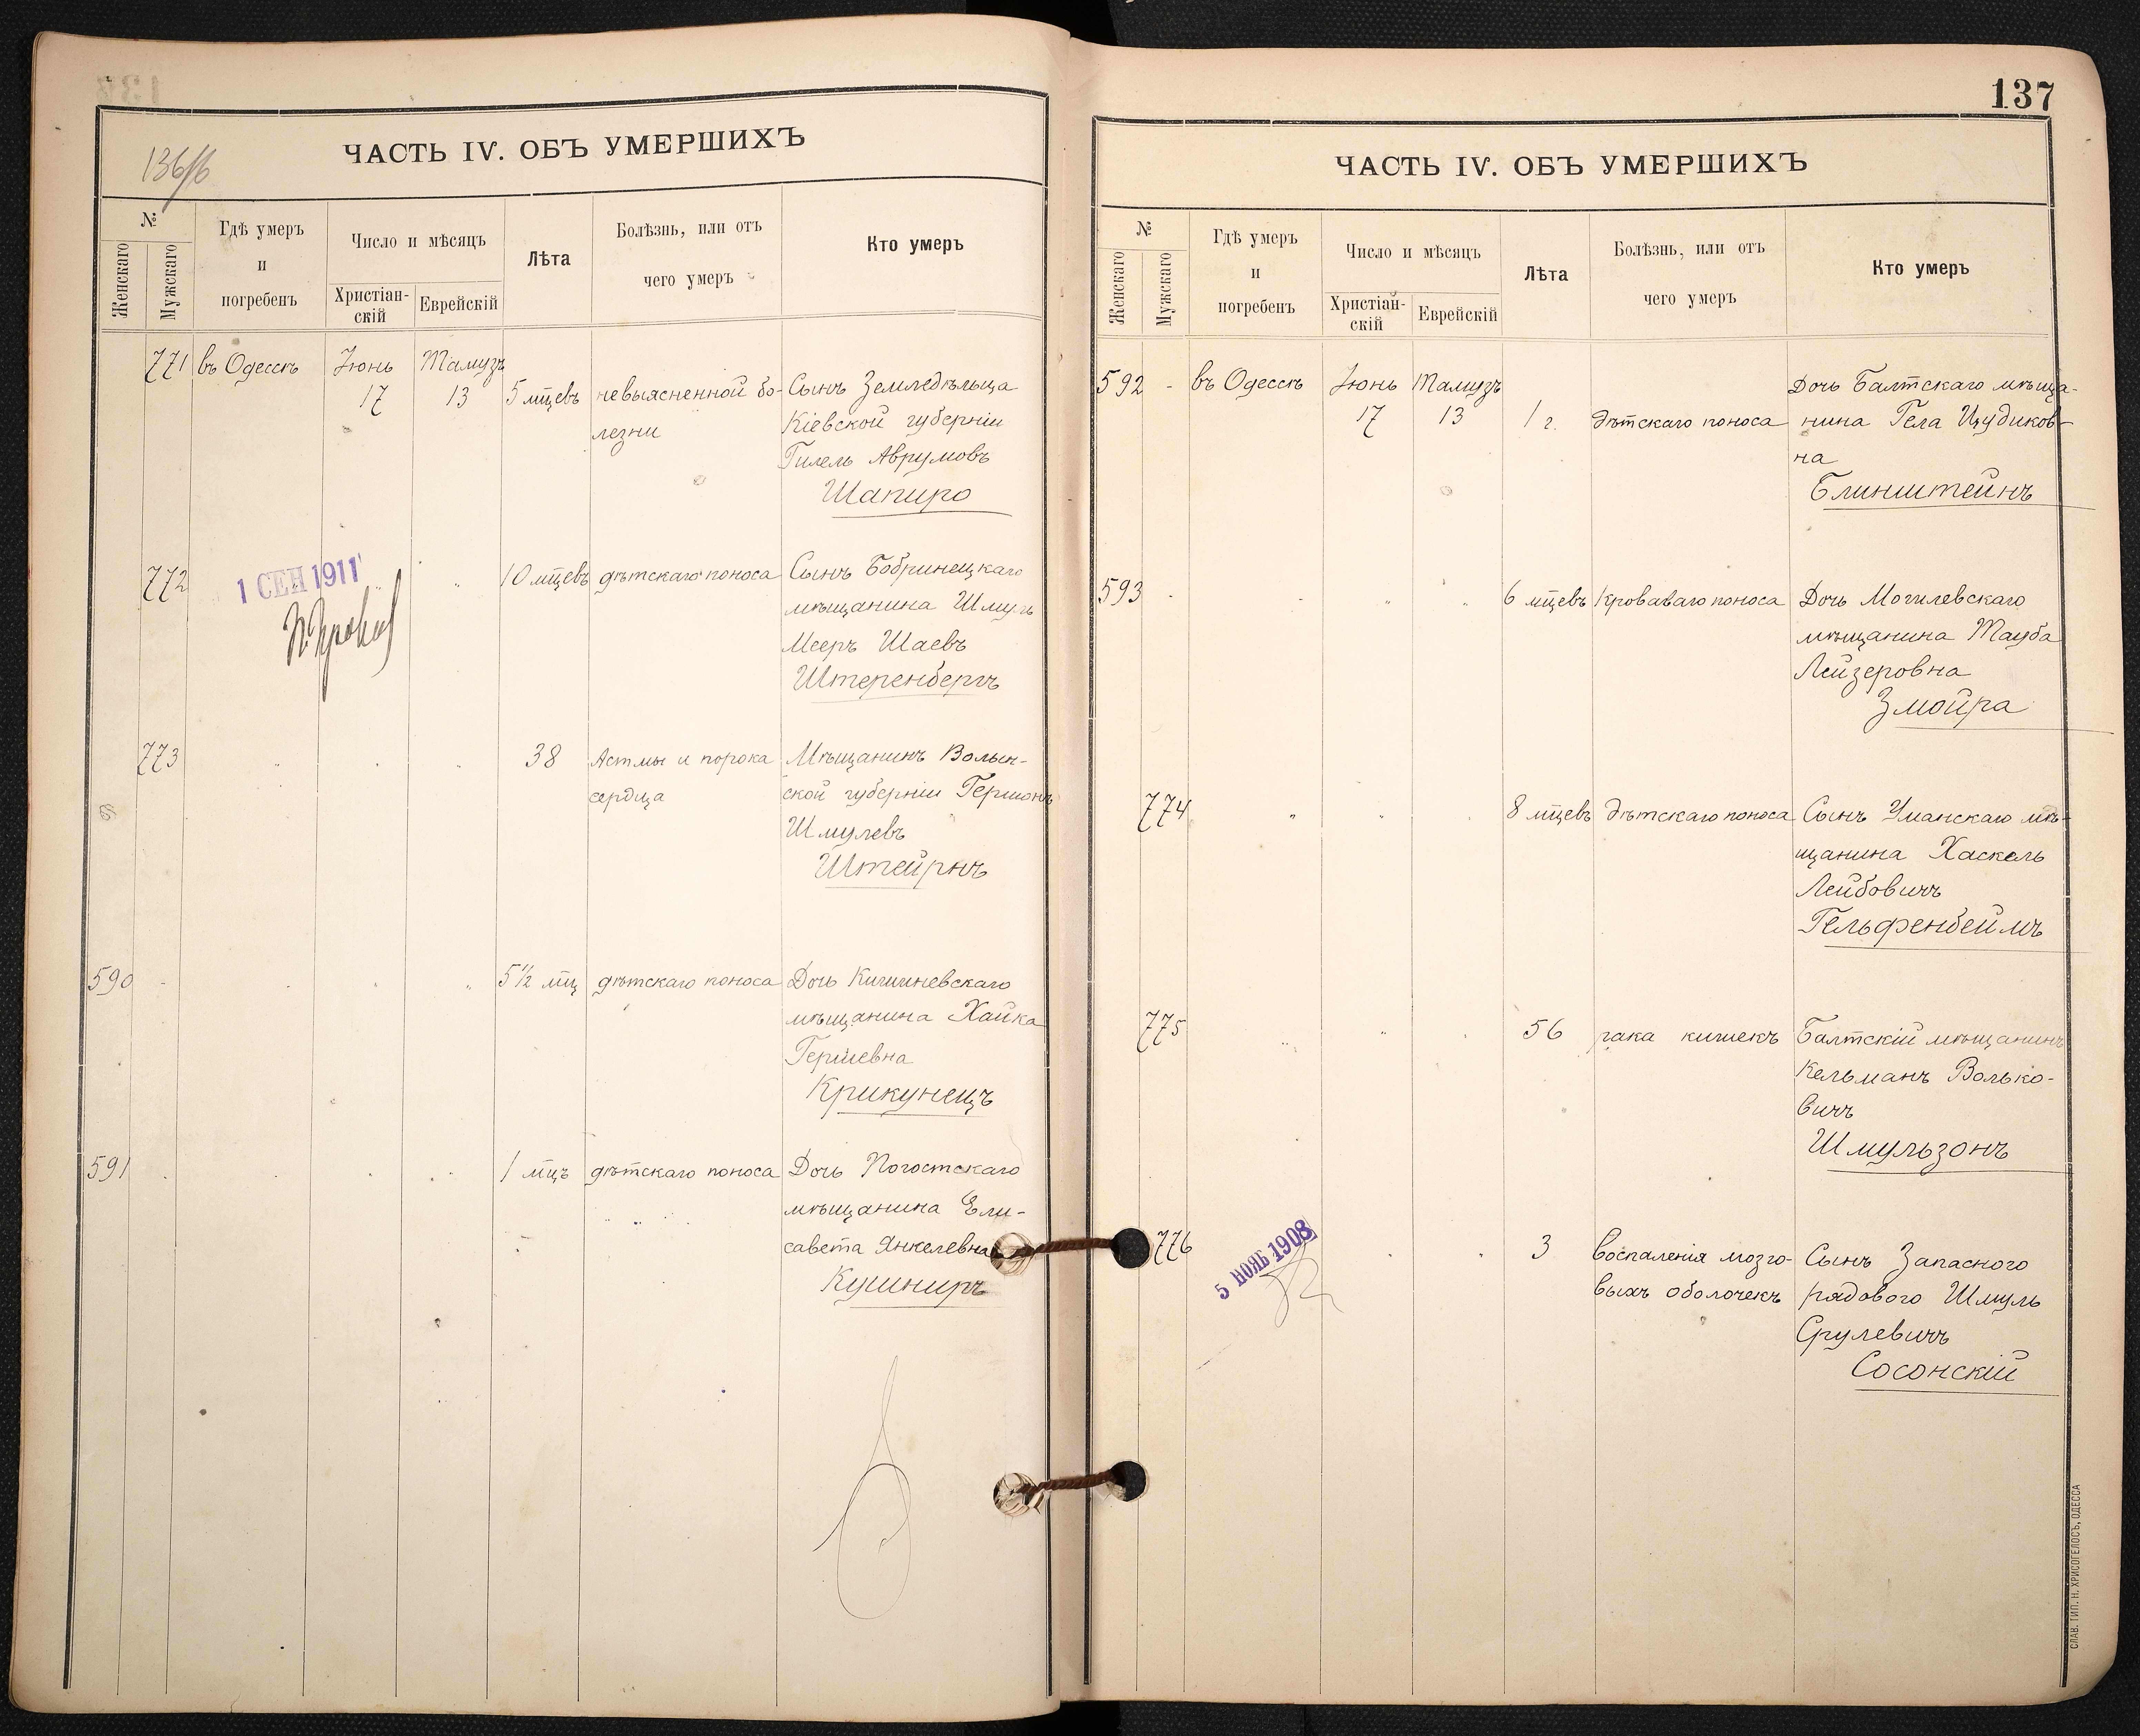 136/б
ЧАСТЬ IV. ОБЪ УМЕРШИХЪ
№
Женскаго
Мужскаго
Гдѣ умеръ
и
погребенъ
Число и мѣсяцъ
Христіан-
скій
Еврейскій
Лѣта
Болѣзнь, или отъ
чего умеръ
Кто умеръ
771 въ Одессѣ Іюнь 17 Тамузъ 13 5 мцевъ
невыясненной бо-
лезни
Сынъ Земледѣльца
Кіевской губерніи
Гилель Аврумовъ
Шапиро
772 " " 10 мцевъ дѣтскаго поноса
1 СЕН 1911
Сынъ Бобринецкаго
мѣщанина Шмуль
Меер Шаевъ
Штеренбергъ
773 38
Астмы и порока
сердца
Мѣщанинъ Волын-
ской губерніи Гершонъ
Шмулевъ
Штейрнъ
590 - " 5 1/2 мц дѣтскаго поноса
Дочь Кишиневскаго
мѣщанина Хайка
Гершевна
Крикунецъ
591 1 мцъ дѣтскаго поноса
Дочь Погостскаго
мѣщанина Ели-
савета Янкелевна
Кушниръ
137
ЧАСТЬ IV. ОБЪ УМЕРШИХЪ
№
Женскаго
Мужскаго
Гдѣ умеръ
и
погребенъ
Число и мѣсяцъ
Христіан-
скій
Еврейскій
Лѣта
Болѣзнь, или отъ
чего умеръ
Кто умеръ
592 - въ Одессѣ Іюнь 17 Тамузъ 13 1 г. дѣтскаго поноса
Дочь Балтскаго мѣща-
нина Гела Цудиков-
на
Блинштейнъ
593 - " " 6 мцевъ кроваваго поноса
Дочь Могилевскаго
мѣщанина Тауба
Лейзеровна
Змойра
774 " " 8 мцевъ дѣтскаго поноса
Сынъ Уманскаго мѣ-
щанина Хаскель
Лейбовичъ
Гельфенбеймъ
775 " " 56 рака кишекъ
Балтскій мѣщанинъ
Кельманъ Волько-
вичъ
Шмульзонъ
776 3
5 НОЯБ 1908
воспаленія мозго-
выхъ оболочекъ
Сынъ Запасного
рядового Шмуль
Срулевичъ
Сосонскій
СЛАВ. ТИП. Н. ХРИСОГЕЛОСЪ, ОДЕССА